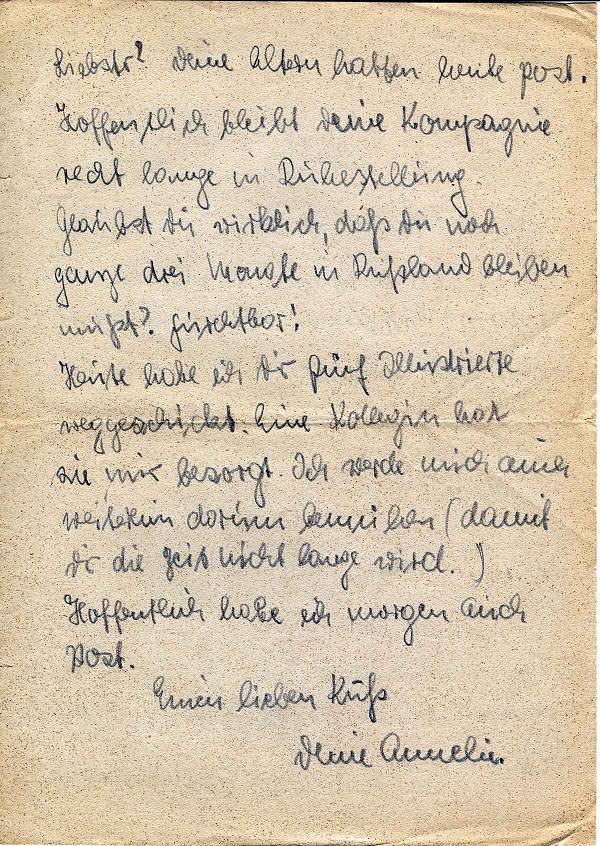 Liebstr? Deine Eltern hatten heute Post.
Hoffentlich bleibt deine Kompagnie
recht lange in Ruhestellung.
Glaubst Du wirklich, daß Du noch
ganze drei Monate in Rußland bleiben
mußt? Furchtbar!
Heute habe ich Dir fünf Illustrierte
weggeschickt. Eine Kollegin hat
sie mir besorgt. Ich werde mich auch
weiterhin darum bemühen (damit
Dir die Zeit nicht lange wird.)
Hoffentlich habe ich morgen auch
Post.
Einen lieben Kuß
Deine Annelie.